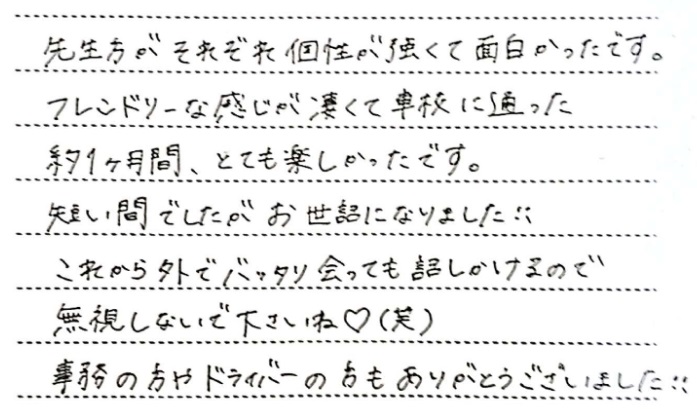 先生方がそれぞれ個性が強くて面白かったです。
フレンドリーな感じが凄くて車校に通った
約1ヶ月間、とても楽しかったです。
短い間でしたがお世話になりました!!
これから外でバッタリ会っても話しかけるので
無視しないで下さいね♡(笑)
事務の方やドライバーの方もありがとうございました!!